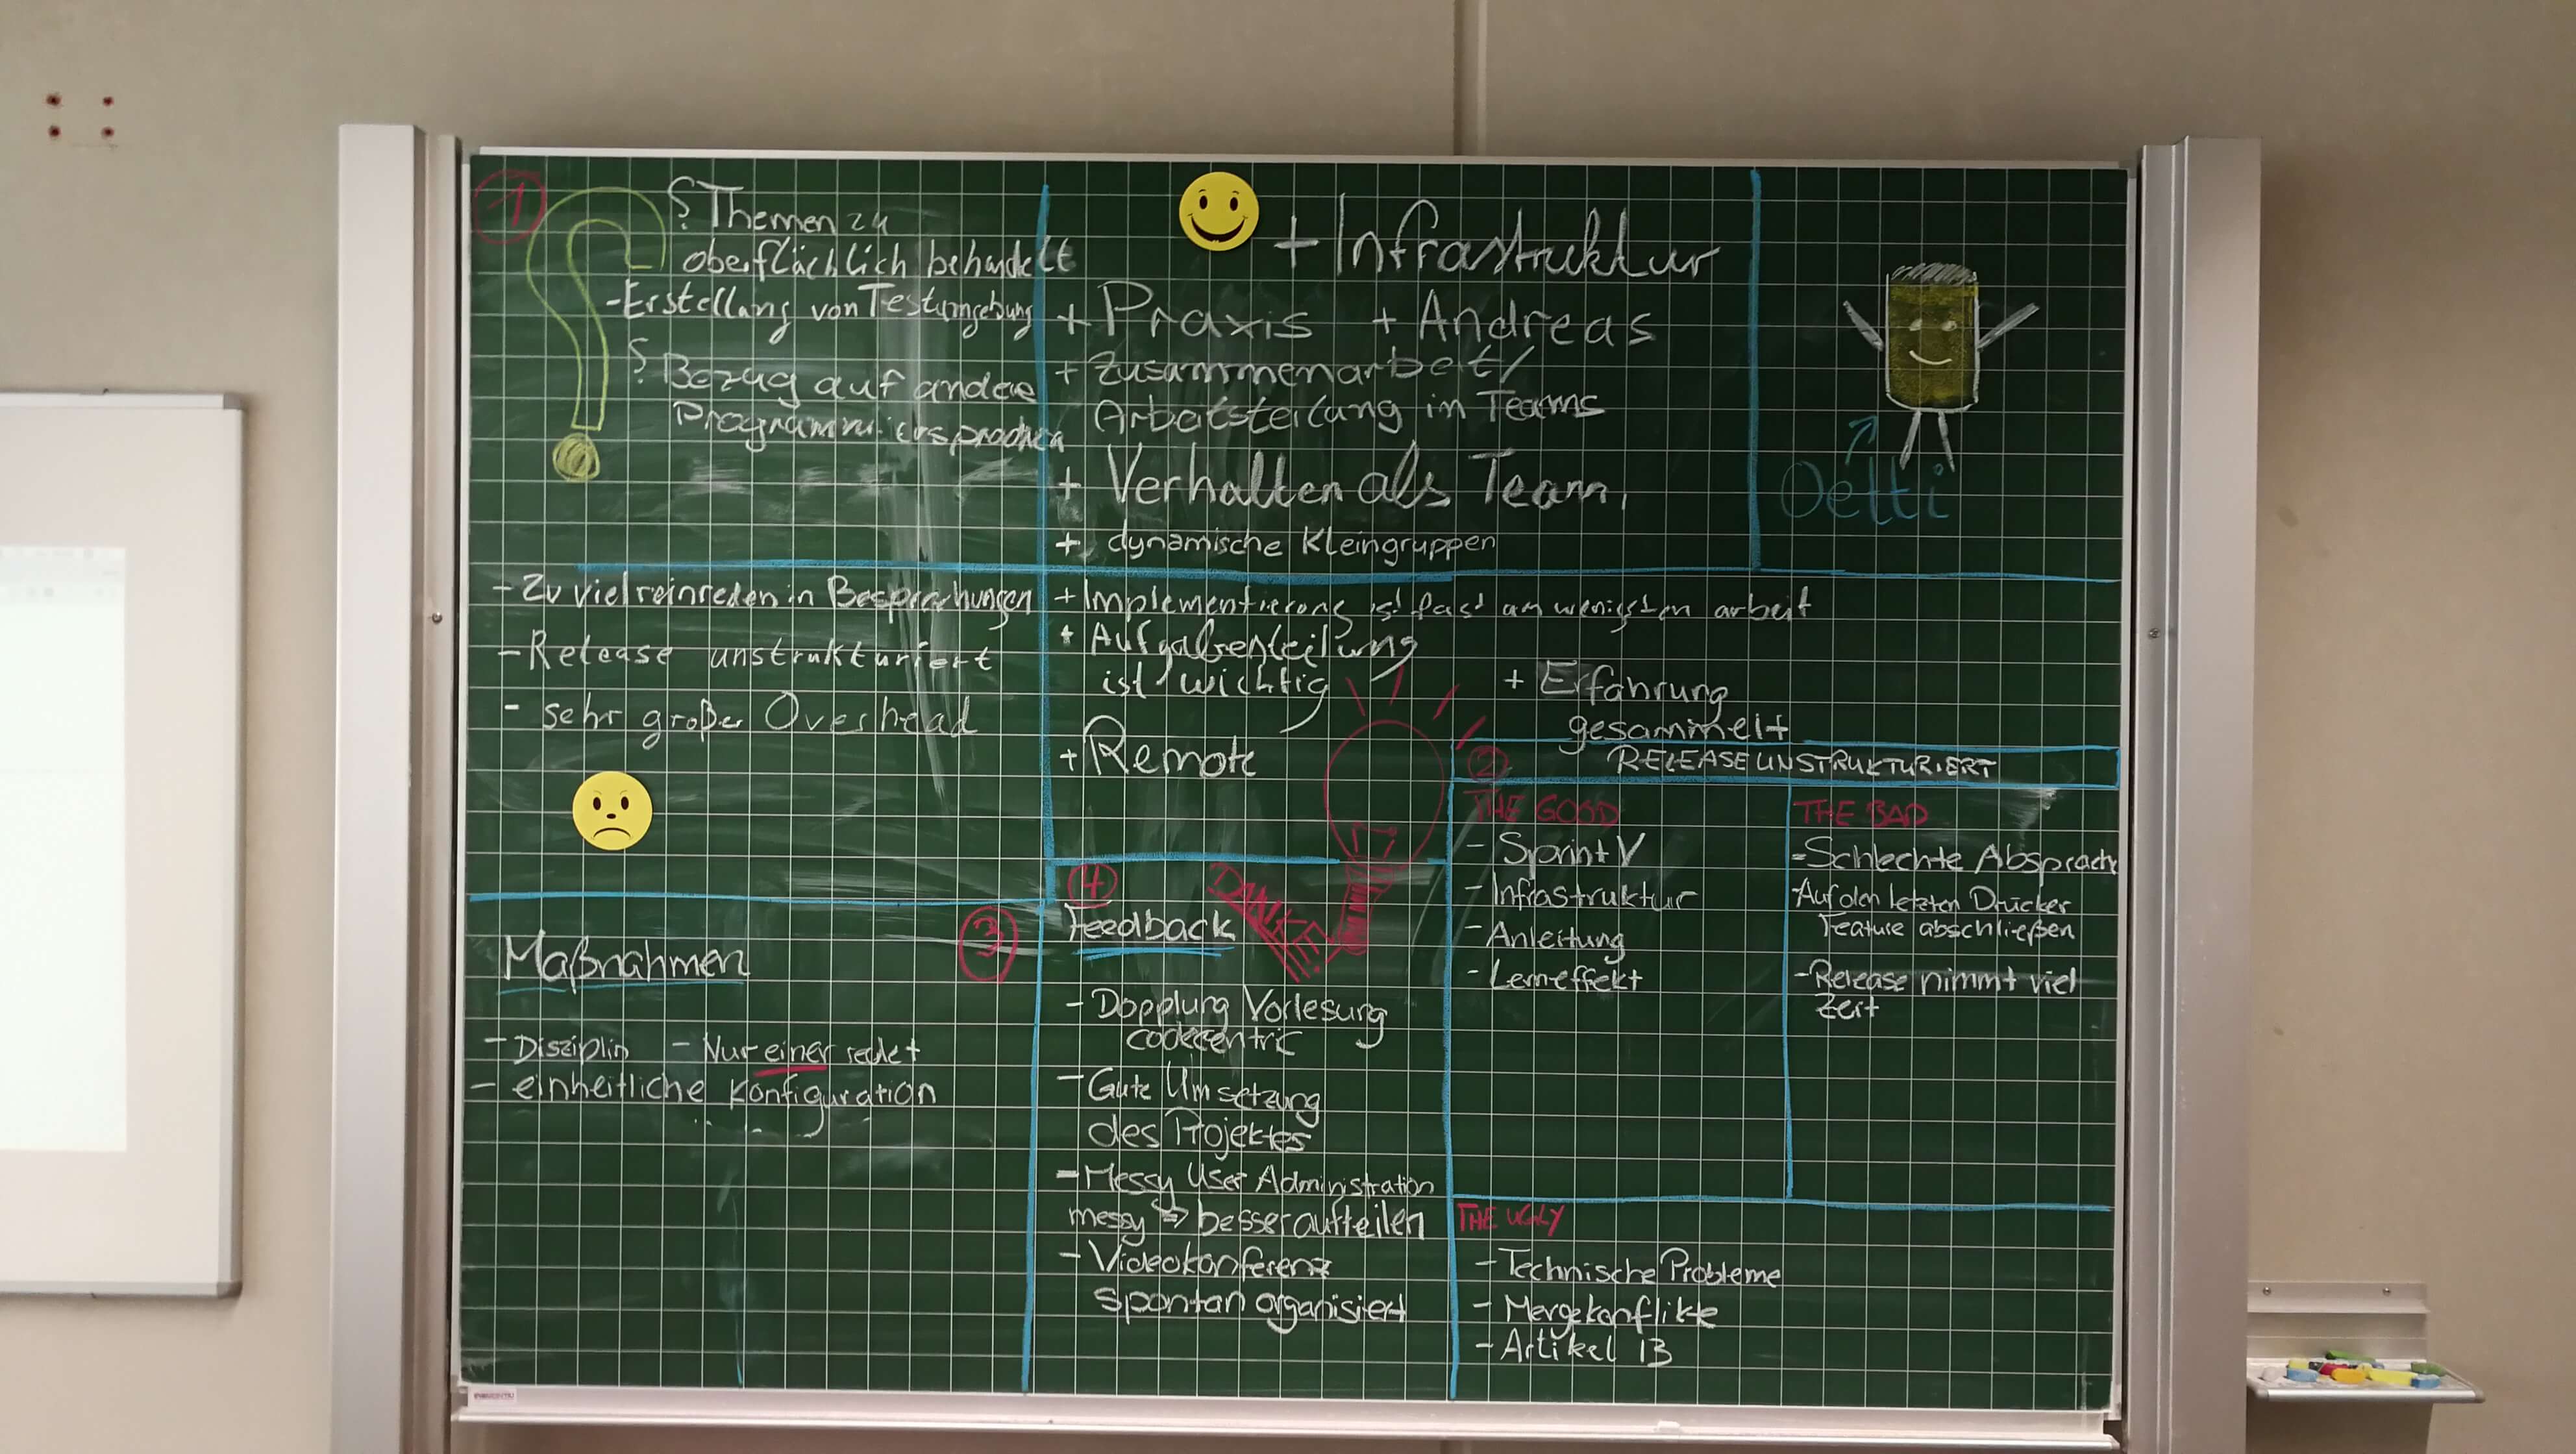 1
? Themen zu
oberflächlich behandelt
- Erstellung von Testumgebung
? Bezug auf andere
Programmiersprachen
+ Infrastruktur
+ Praxis + Andreas
+ Zusammenarbeit/
Arbeitsteilung in Teams
+ Verhalten als Team
+ dynamische Kleingruppen
Oetti
- Zu viel reinreden in Besprechungen
- Release unstrukturiert
- sehr großer Overhead
+ Implementierung ist fast am wenigsten arbeit
+ Aufgabenteilung
ist wichtig
+ Erfahrung
gesammelt
+ Remote
2
RELEASE UNSTRUKTURIERT
THE GOOD
- Sprint V
- Infrastruktur
- Anleitung
- Lerneffekt
THE BAD
- Schlechte Absprache
- Auf den letzten Drücker
Feature abschließen
- Release nimmt viel
Zeit
THE UGLY
- Technische Probleme
- Mergekonflikte
- Artikel 13
3
Maßnahmen
- Disziplin - Nur einer redet
- einheitliche Konfiguration
4
Feedback
DANKE!
- Dopplung Vorlesung
codecentric
- Gute Umsetzung
des Projektes
- Messy User Administration
messy => besser aufteilen
- Videokonferenz
spontan organisiert